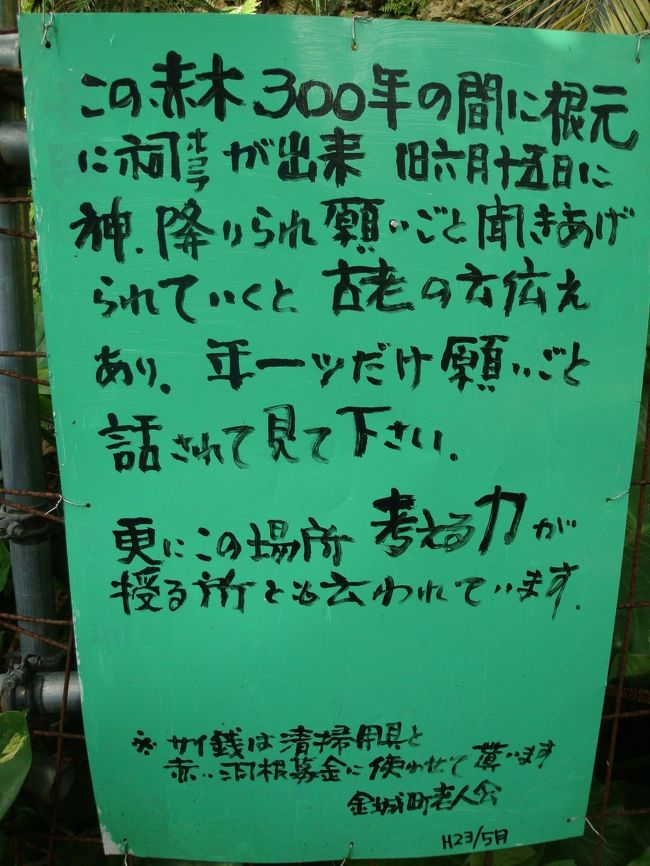 この赤木300年の間に根元
に祠ホコラが出来 旧六月十五日に
神、降りられ願いごと聞きあげ
られていくと 古老の云伝え
あり。年一ツだけ願いごと
話されて見て下さい。
更にこの場所 考える力が
授る所とも云われています.
※ サイ銭は清掃用具と
赤い羽根募金に使わせて貰います
金城町老人会
H23/5月